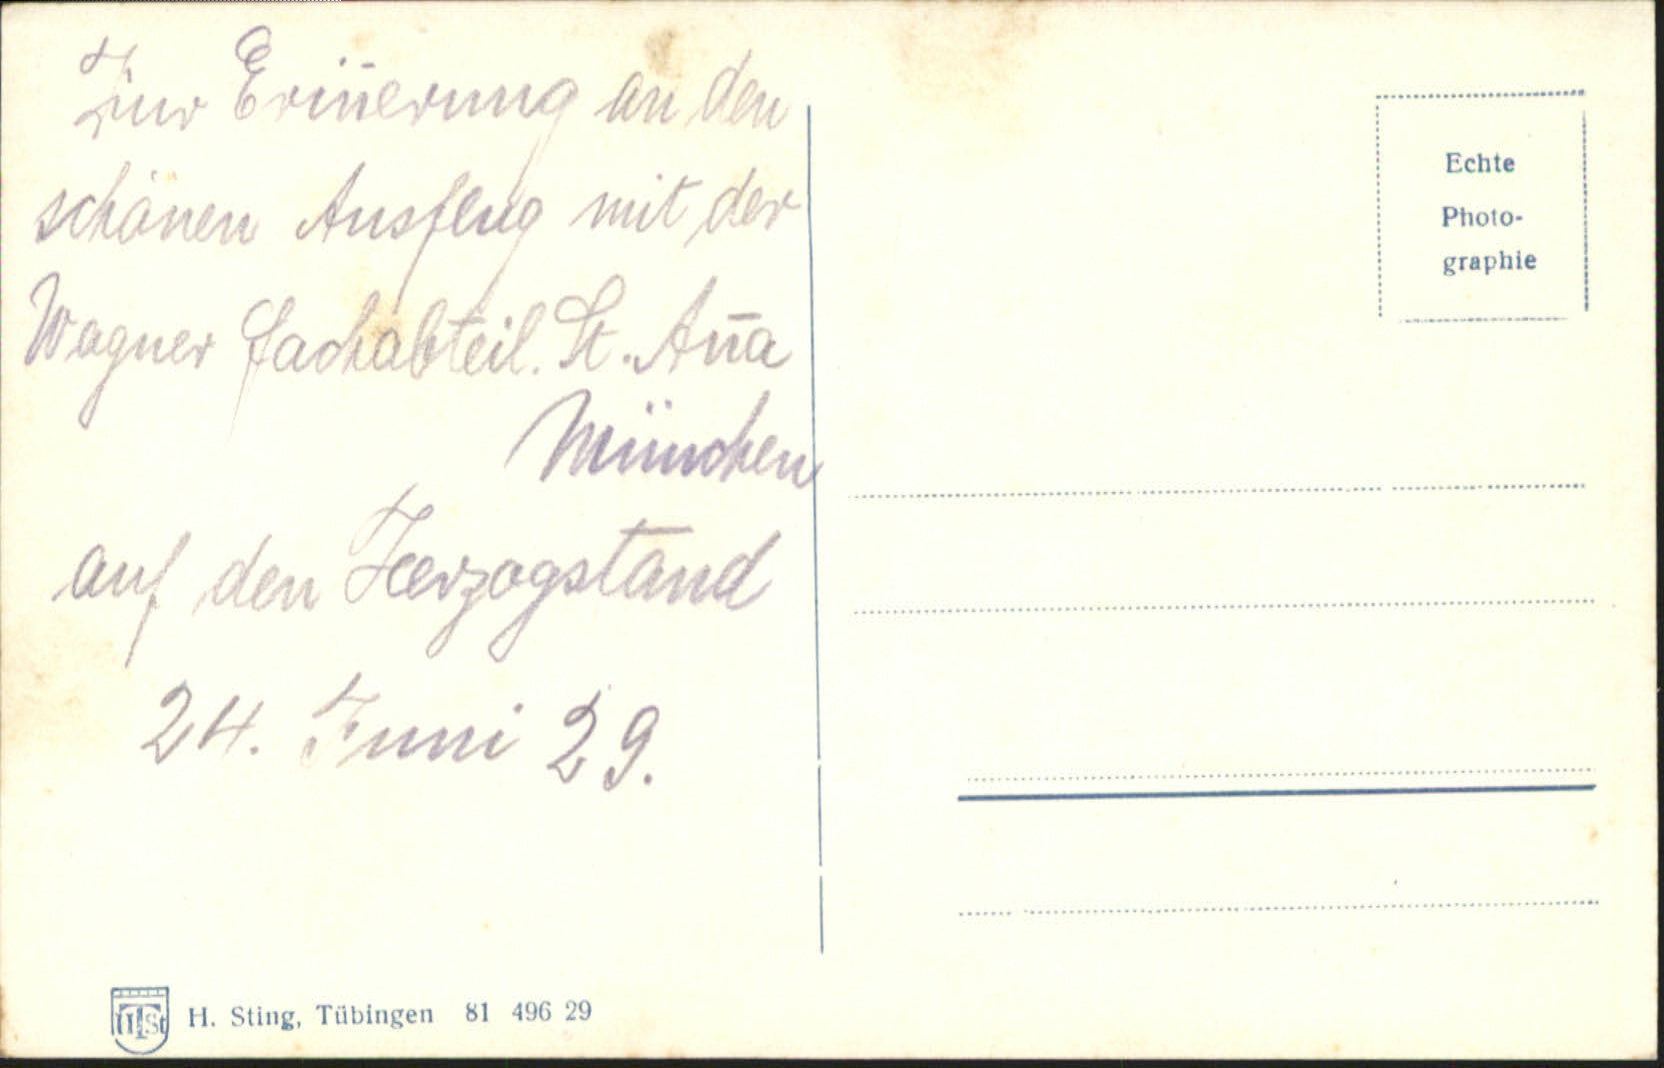 Zur Erin̄erung an den
schönen Ausflug mit der
Wagner Fachabteil. St. An̄a
München
auf den Herzogstand
24. Juni 29.
Echte
Photo-
graphie
HTSt H. Sting, Tübingen 81 496 29